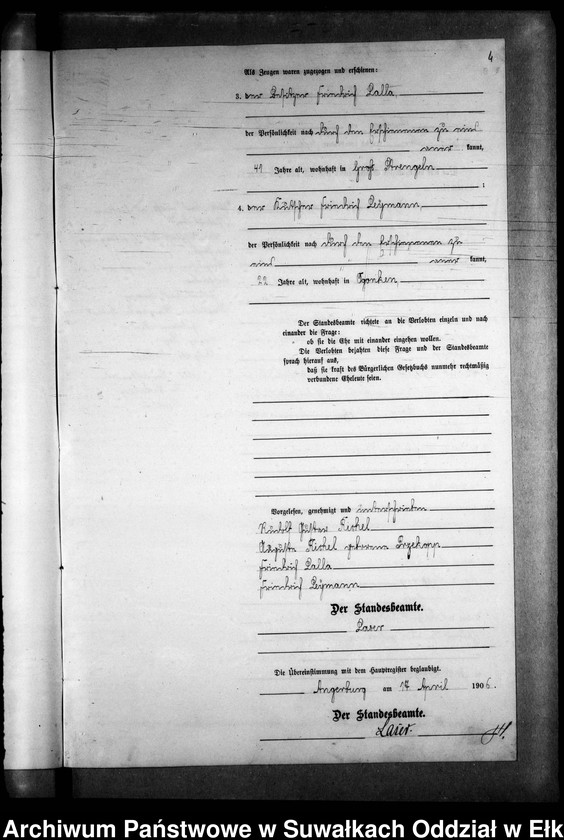 4
Als Zeugen waren zugezogen und erschienen:
3. der Besitzer Friedrich Palla,
der Persönlichkeit nach durch den Erschienenen zu eins
kannt,
41 Jahre alt, wohnhaft in Groß Strengeln
;
4. der Kutscher Friedrich Reymann,
der Persönlichkeit nach durch den Erschienenen zu
eins kannt,
22 Jahre alt, wohnhaft in Ogonken,
Der Standesbeamte richtete an die Verlobten einzeln und nach
einander die Frage:
ob sie die Ehe mit einander eingehen wollen.
Die Verlobten bejahten diese Frage und der Standesbeamte
sprach hierauf aus,
daß sie kraft des Bürgerlichen Gesetzbuchs nunmehr rechtmäßig
verbundene Eheleute seien.
Vorgelesen, genehmigt und unterschrieben
Rudolf Gustav
Auguste geborene
Friedrich Palla
Friedrich Reymann
Der Standesbeamte.
Laser
Die Übereinstimmung mit dem Hauptregister beglaubigt.
Angerburg am 17 April 1906.
Der Standesbeamte.
Laser.
Archiwum Państwowe w Suwałkach Oddział w Ełk